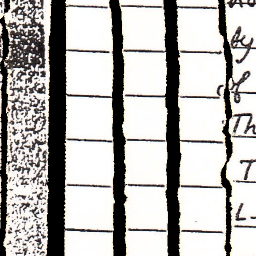 by
of
Th
T
L-